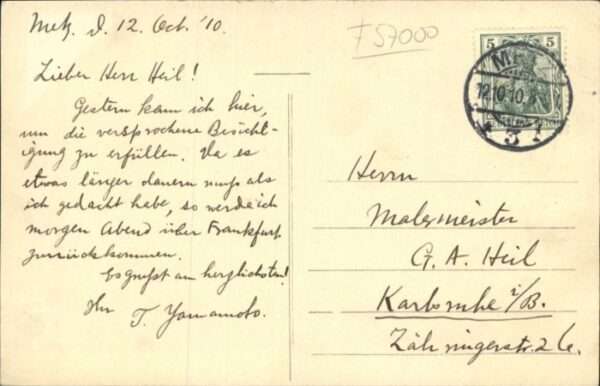 Metz, d. 12. Oct. '10.
Lieber Herr Heil!
Gestern kam ich hier,
um die versprochene Besicht-
igung zu erfüllen. Da es
etwas länger dauern muss als
ich gedacht habe, so werde ich
morgen Abend über Frankfurt
zurückkommen.
Es grüßt am herzlichsten!
Ihr T. Yamamoto.
F 57000
5 5
12.10.10.
* 3 1
Herrn
Malermeister
G. A. Heil
Karlsruhe i/B.
Zähringerstr.